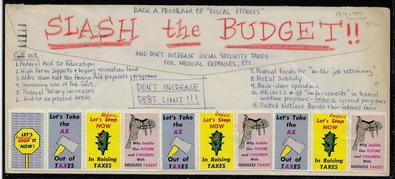 BACK A PROGRAM OF "FISCAL FITNESS"
SLASH the BUDGET!!
AND DON'T INCREASE SOCIAL SECURITY TAXES
FOR MEDICAL EXPENSES, ETC.
Cut out
1. Federal Aid to Education
2. High Farm Supports + buying recreation land
3. More than half the Foreign Aid proposals + programs
4. Increasing size of Fed. Govt.
5. Federal Salary increases
6. Aid to depressed areas
DON'T INCREASE
DEBT LIMIT!!!
7. Federal funds for "on-the-job retraining
8. Postal Subsidy
9. Back-door spending
10. HR 10032 + all "improvements" in federal
welfare programs - reduce current programs
11. United Nations Bonds + their interest
LET'S
STOP IT
NOW!
Let's Take
the
AX
Out of
TAXES
Reduce
Let's Stop
NOW
In Raising
TAXES
Why Saddle
Our FUTURE
and CHILDREN
With
NEEDLESS TAXES?
Let's Take
the
AX
Out of
TAXES
Reduce
Let's Stop
NOW
In Raising
TAXES
Why Saddle
Our FUTURE
and CHILDREN
With
NEEDLESS TAXES?
Let's Take
the
AX
Out of
TAXES
Reduce
Let's Stop
NOW
In Raising
TAXES
Why Saddle
Our FUTURE
and CHILDREN
With
NEEDLESS TAXES?